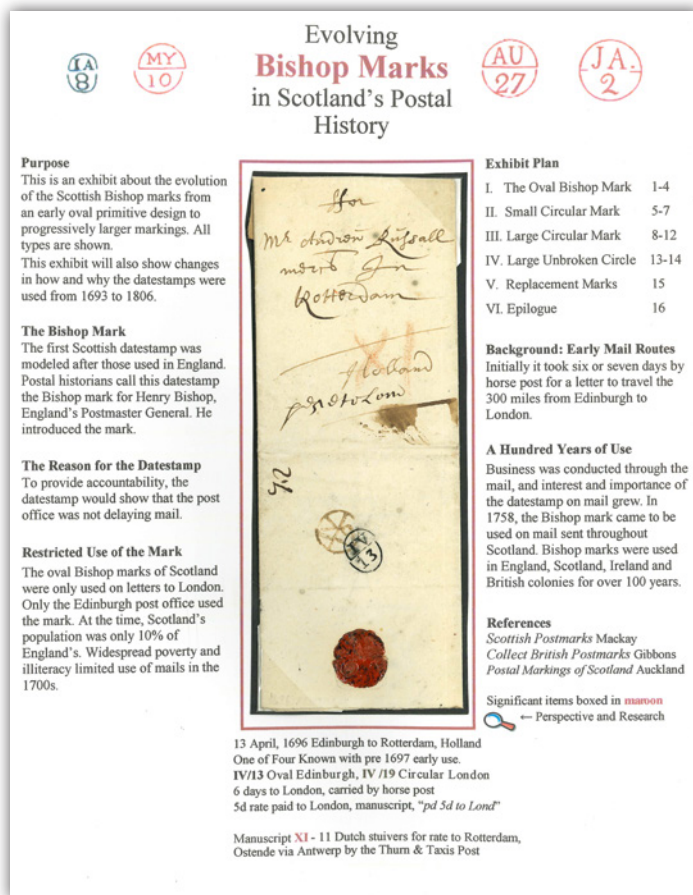 Evolving
Bishop Marks
in Scotland's Postal
History
IA
8
MY
10
AU
27
JA.
2
Purpose
This is an exhibit about the evolution
of the Scottish Bishop marks from
an early oval primitive design to
progressively larger markings. All
types are shown.
This exhibit will also show changes
in how and why the datestamps were
used from 1693 to 1806.
The Bishop Mark
The first Scottish datestamp was
modeled after those used in England.
Postal historians call this datestamp
the Bishop mark for Henry Bishop,
England's Postmaster General. He
introduced the mark.
The Reason for the Datestamp
To provide accountability, the
datestamp would show that the post
office was not delaying mail.
Restricted Use of the Mark
The oval Bishop marks of Scotland
were only used on letters to London.
Only the Edinburgh post office used
the mark. At the time, Scotland's
population was only 10% of
England's. Widespread poverty and
illiteracy limited use of mails in the
1700s.
ffor
Mr Andrew Russall
In
Rotterdam
XI
Holland
IV
13
13 April, 1696 Edinburgh to Rotterdam, Holland
One of Four Known with pre 1697 early use.
IV/13 Oval Edinburgh, IV /19 Circular London
6 days to London, carried by horse post
5d rate paid to London, manuscript, "pd 5d to Lond"
Manuscript XI - 11 Dutch stuivers for rate to Rotterdam,
Ostende via Antwerp by the Thurn & Taxis Post
Exhibit Plan
I. The Oval Bishop Mark 1-4
II. Small Circular Mark 5-7
III. Large Circular Mark 8-12
IV. Large Unbroken Circle 13-14
V. Replacement Marks 15
VI. Epilogue 16
Background: Early Mail Routes
Initially it took six or seven days by
horse post for a letter to travel the
300 miles from Edinburgh to
London.
A Hundred Years of Use
Business was conducted through the
mail, and interest and importance of
the datestamp on mail grew. In
1758, the Bishop mark came to be
used on mail sent throughout
Scotland. Bishop marks were used
in England, Scotland, Ireland and
British colonies for over 100 years.
References
Scottish Postmarks Mackay
Collect British Postmarks Gibbons
Postal Markings of Scotland Auckland
Significant items boxed in maroon
← Perspective and Research